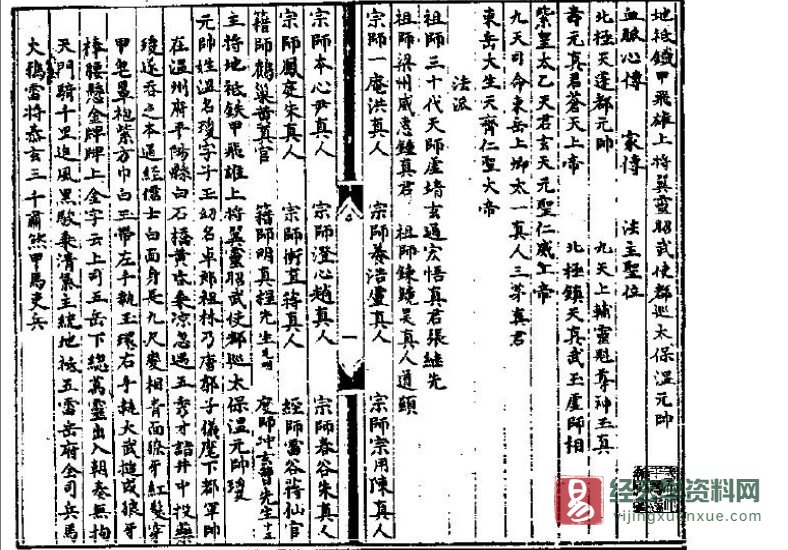 地祇鐵甲飛雄上將翼靈昭武使都巡太保溫元帥
血脈心傳 家傳 法主聖位
北極天蓬都元帥 九天上輔靈魁尊神玉真
壽元真君蒼天上帝 北極鎮天真武玉虛師相
紫皇太乙天君玄天元聖仁威上帝
九天司命東岳上卿太一真人三茅真君
東岳大生天齊仁聖大帝
法派
祖師三十代天師虛靖玄通宏悟真君張繼先
祖師梁州威惠鍾真君 祖師鍊鏡吳真人道顯
宗師一庵洪真人 宗師養浩盧真人 宗師宗用陳真人
宗師本心尹真人 宗師澄心趙真人 宗師春谷朱真人
宗師鳳庭朱真人 宗師衡其蔣真人 經師雷谷蔣仙官
籍師鶴巢黃真官 籍師明真程先生 度師冲玄曾先生
主將地祇鐵甲飛雄上將翼靈昭武使都巡太保溫元帥瓊
元帥姓溫名瓊字子玉幼名卓郎祖林乃唐郭子儀麾下都軍帥
在溫州府平陽縣白石橋黃昏乘凉忽遇五秀才諸井中投藥
瓊遂吞之本通經儒士白面身長九尺變相青面獠牙紅髮穿
甲皂羃袍紫方巾白玉帶左手執玉環右手執大武鎚或狼牙
棒腰懸金牌牌上金字云上司五岳下總萬靈出入朝奏無拘
天門騎千里追風黑駿乘清紫主統地祇五雷岳府全司兵馬
大鵶雷將泰玄三千甲馬吏兵
一
经缘学资料网
yijingxuanxue.com
易